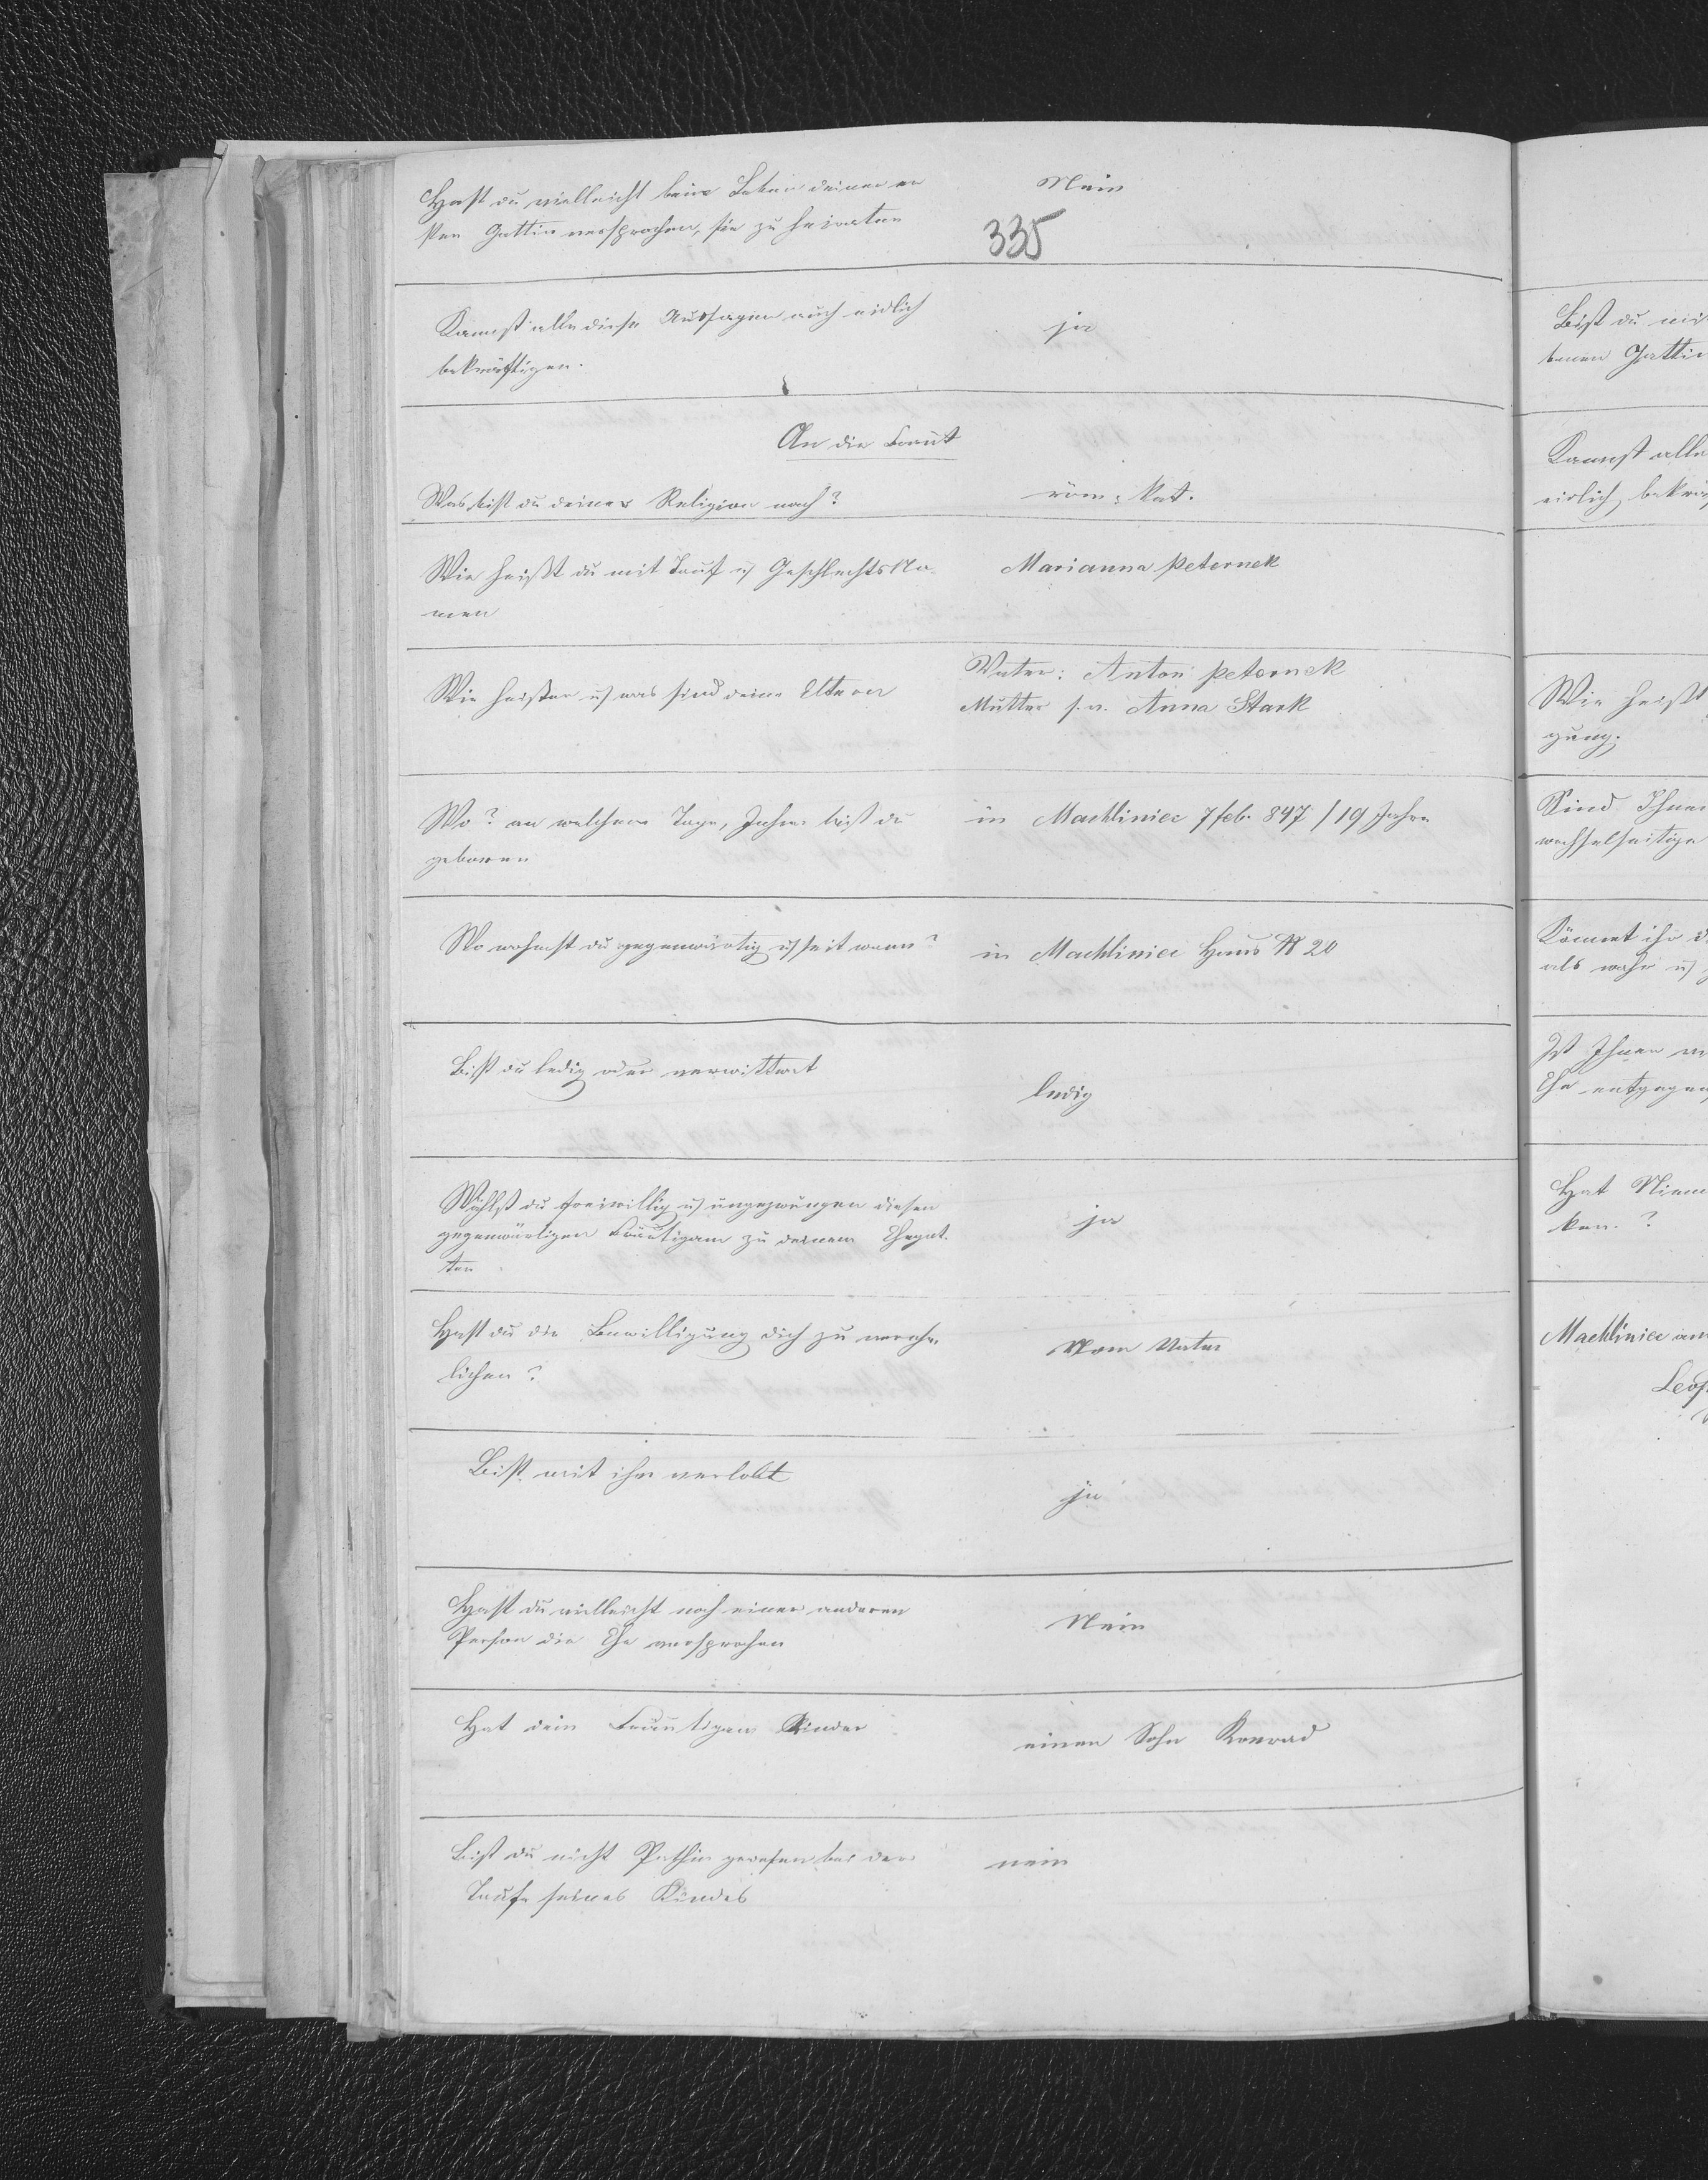 Hast du vielleicht beim Leben deiner er
sten Gattin versprochen, sie zu heiraten
Nein
335
Kannst alle diese Aussagen auch eidlich
bekräftigen.
ja
An die Braut
Was bist du deiner Religion nach?
röm: kat.
Wie heißt du mit Tauf u Geschlechts Na-
men
Marianna Peternek
Wie heißen u was sind deine Eltern
Vater: Anton Peternek
Mutter s. v. Anna Stark
Wo? an welchem Tage, Jahre bist du
geboren
in Machliniec 7 feb. 847 / 19 Jahre
Wo wohnst du gegenwärtig u seit wann?
in Machliniec Haus N 20
Bist du ledig oder verwittwet
ledig
Wählst du freiwillig u ungezwungen diesen
gegenwärtigen Bräutigam zu deinem Ehegat-
ten
ja
Hast du die Bewilligung dich zu vereh-
lichen?
Vom Vater
Bist mit ihm verlobt
ja
Hast du vielleicht noch einer anderen
Person die Ehe versprochen
Nein
Hat dein Bräutigam Kinder
einen Sohn Konrad
Bist du nicht Pathin gewesen bei der
Taufe seines Kindes
nein
Bist du
benen Gattin
Kannst alle
eidlich bekrä
Wie heißt
gung.
Sind Ihnen
wechselseitige
Könnet ihr d
als wahr u
Ist Ihnen
Ehe entgegen
Hat Niem
ken. ?
Machliniec am
Leop